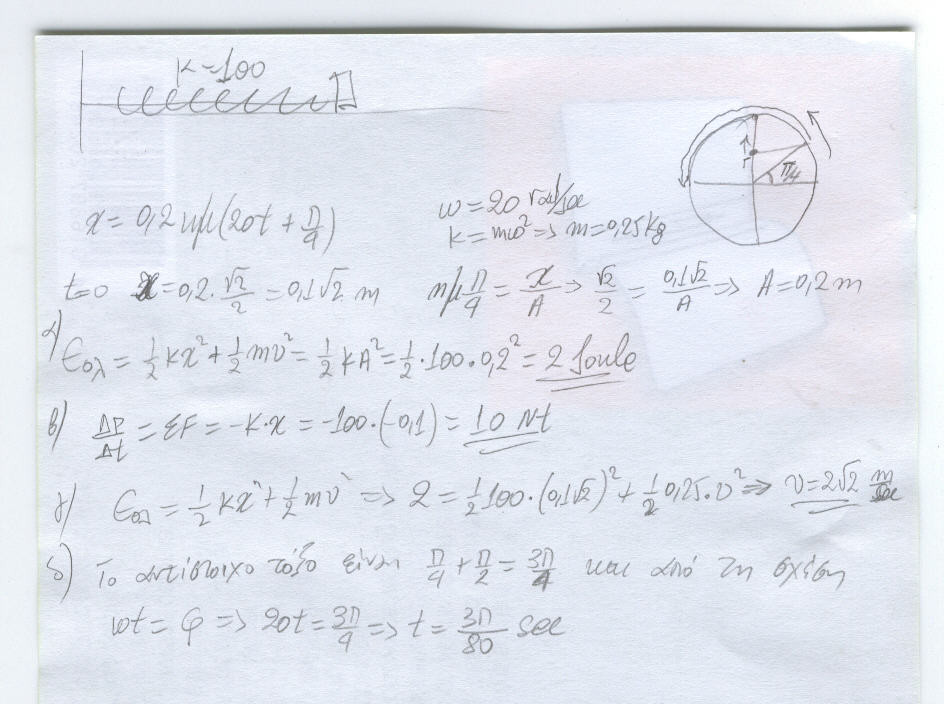 K=100
π/4
x = 0,2 ημ(20t + π/4)
ω = 20 rad/sec
K = mω² => m = 0,25 kg
t=0 x = 0,2 · √2/2 = 0,1√2 m ημ π/4 = x/A => √2/2 = 0,1√2/A => A = 0,2 m
α) Εολ = 1/2 Kx² + 1/2 mυ² = 1/2 KA² = 1/2 · 100 · 0,2² = 2 Joule
β) ΔP/Δt = ΣF = -K·x = -100·(-0,1) = 10 Nt
γ) Εολ = 1/2 Kx² + 1/2 mυ² => 2 = 1/2 100·(0,1√2)² + 1/2 0,25·υ² => υ = 2√2 m/sec
δ) Το αντίστοιχο τόξο είναι π/4 + π/2 = 3π/4 και από τη σχέση
ωt = φ => 20t = 3π/4 => t = 3π/80 sec